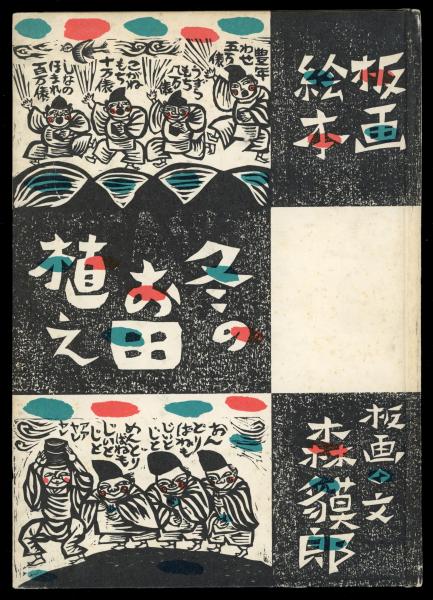 板画
絵本
豊年
わせ
五万俵
もち
八万俵
こがね
もち
十万俵
しなの
ほまれ
百万俵
冬の
お田
植え
おん
どり
ばねも
じじと
めんどり
ばねも
じいと
じじと
ヤアア
板画・文
森貘郎